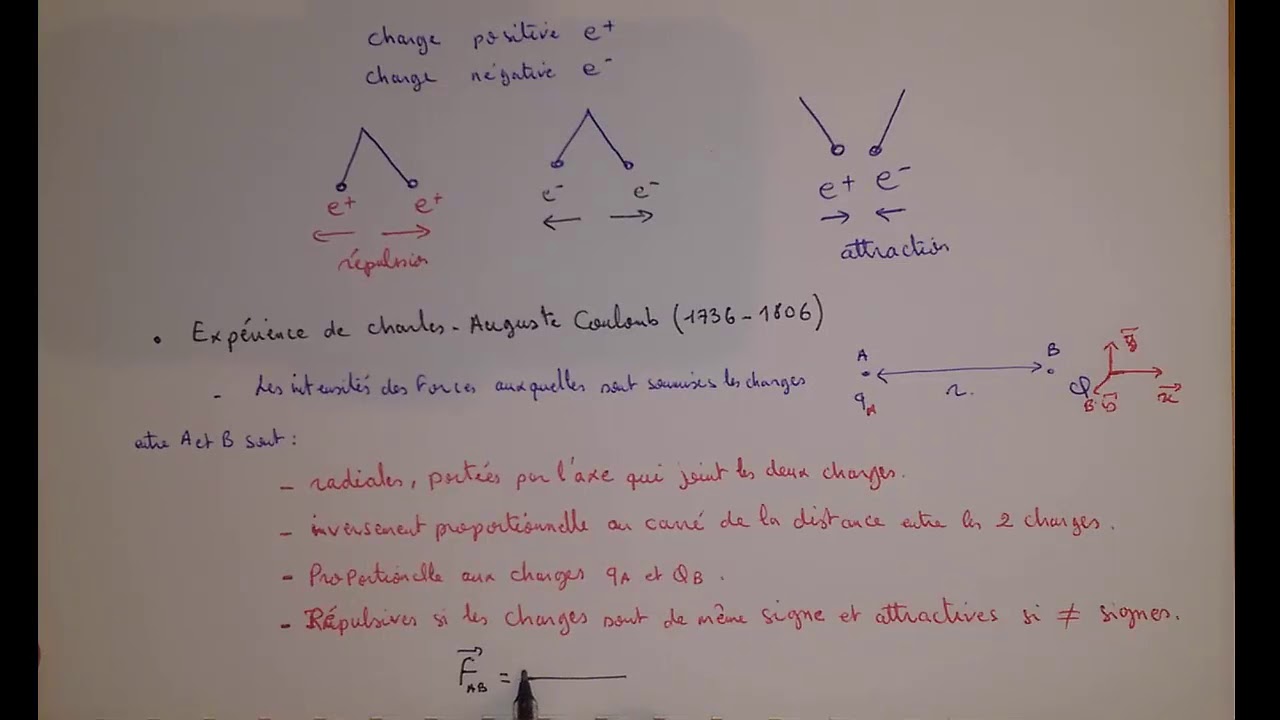 charge positive e+
charge négative e-
e+ e+
répulsion
e- e-
e+ e-
attraction
• Expérience de Charles-Auguste Coulomb (1736-1806)
- Les intensités des Forces auxquelles sont soumises les charges
entre A et B sont :
A B
qA r QB
y x
- radiales, portées par l'axe qui joint les deux charges.
- inversement proportionnelle au carré de la distance entre les 2 charges.
- Proportionelle aux charges qA et QB.
- Répulsives si les charges sont de même signe et attractives si ≠ signes.
F AB =